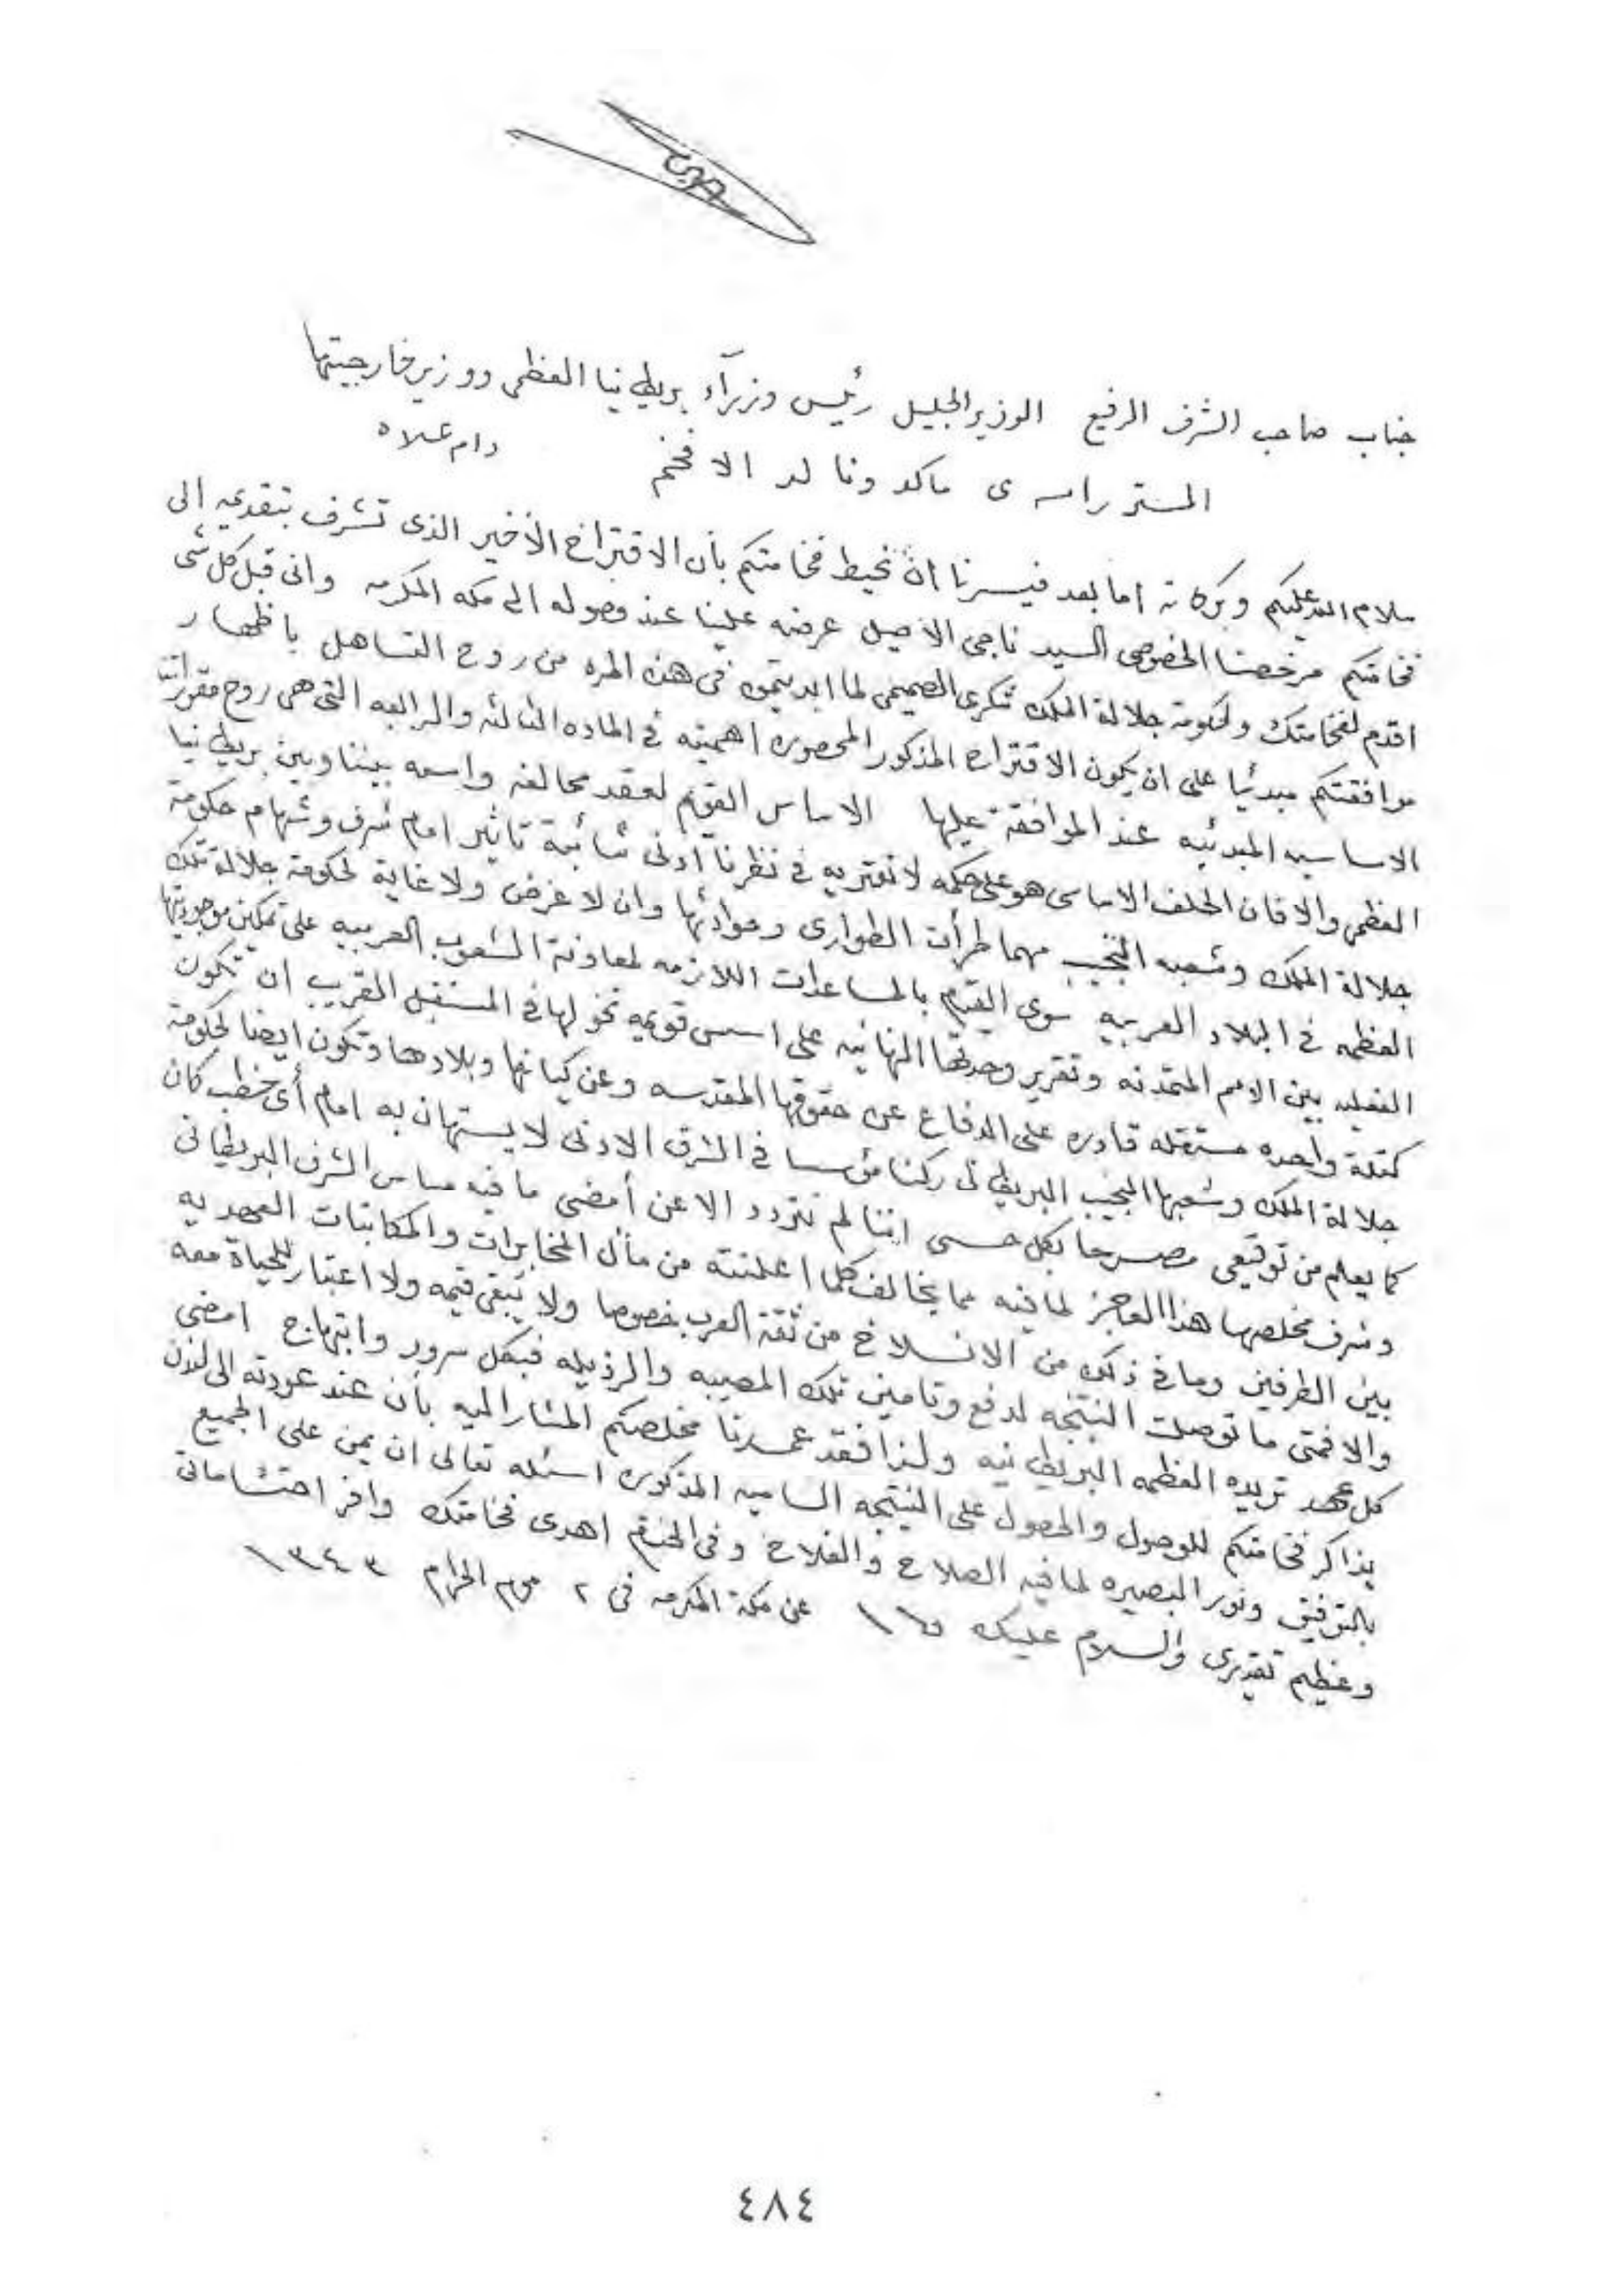 حسين
جناب صاحب الشرف الرفيع الوزير الجليل رئيس وزرآء بريطانيا العظمى ووزير خارجيتها
المستر رامسى ماكدونالد الافخم دام علاه
سلام الله عليكم وبركاته اما بعد فيسرنا ان نحيط فخامتكم بأن الاقتراح الأخير الذى تشرف بتقديمه الى
فخامتكم مرخصنا الخصوصى السيد ناجى الاصيل عرضه علينا عند وصوله الى مكه المكرمه وانى قبل كل شى
اقدم لفخامتك ولحكومة جلالة الملك شكرى الصميمى لما ابديتموه فى هذه المره من روح التساهل باظهار
موافقتكم مبدئيا على ان يكون الاقتراح المذكور المحصوره اهميته فى الماده الثالثه والرابعه التى هى روح مقرراتنا
الاساسيه المبدئيه عند الموافقة عليها الاساس القويم لعقد محالفه واسعه بيننا وبين بريطانيا
العظمى والا فان الحلف الاساسى هو على حكمه لا تعتريه فى نظرنا أدنى شائبة تاثير امام شرف وشهام حكومة
جلالة الملك وشعبه النجيب مهما طرأت الطوارى وحوادثها وان لا غرض ولا غاية لحكومة جلالة تلك
العظمه فى البلاد العربيه سوى القيام بالمساعدات اللازمه لمعاونة الشعوب العربيه على تمكين موجوديتها
الفعليه بين الامم المتمدنه وتقرير وحدتها النهائيه على اسس قويمه تخولها فى المستقبل القريب ان تكون
كتلة واحده مستقله قادره على الدفاع عن حقوقها المقدسه وعن كيانها وبلادها وتكون ايضا لحكومة
جلالة الملك وشعبها النجيب البريطانى ركنا مؤسسا فى الشرق الادنى لا يستهان به امام أى خطب كان
كما يعلم من توقيعى مصرحا بكل حسى اننا لم نتردد الا عن أمضى ما فيه مساس الشرف البريطانى
وشرف مخلصها هذا العاجز لما فيه مما يخالف كلما اعلنته من مأل المخابرات والمكاتبات العهديه
بين الطرفين وما فى ذلك من الانسلاخ من ثقة العرب خصوصا ولا يبقى قيمه ولا اعتبار للحياة معه
والا فمتى ما توصلت النتيجه لدفع وتامين تلك المصيبه والرذيله فبكل سرور وابتهاج امضى
كل عهد تريده العظمه البريطانيه ولذا فقد عمدنا مخلصكم المشار اليه بأن عند عودته الى لندن
يذاكر فخامتكم للوصول والحصول على النتيجه الساميه المذكوره اسئله تعالى ان يمن على الجميع
بالتوفيق ونور البصيره لما فيه الصلاح والفلاح وفى الختام اهدى فخامتك وافر احتشاماتى
وعظيم تقديرى والسلام عليك عن مكة المكرمه فى ٢ محرم الحرام ١٣٤٣
٤٨٤